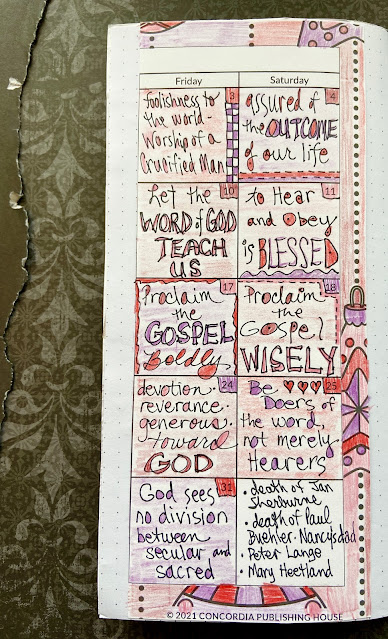 Friday
Saturday
3
foolishness to
the world-
Worship of a
Crucified Man
4
assured of
the OUTCOME
of our life
10
Let the
WORD of GOD
TEACH
US
11
to Hear
and Obey
is BLESSED
17
Proclaim
the
GOSPEL
Boldly
18
Proclaim
the
Gospel
WISELY
24
devotion.
reverance.
generous.
toward
GOD
25
Be ♥♥♥
Doers of
the word,
not merely
Hearers
31
God sees
no division
between
secular and
sacred
• death of Jan
Sherburne
• death of Paul
Buehler-Nancy's dad
• Peter Lange
• Mary Heetland
© 2021 CONCORDIA PUBLISHING HOUSE